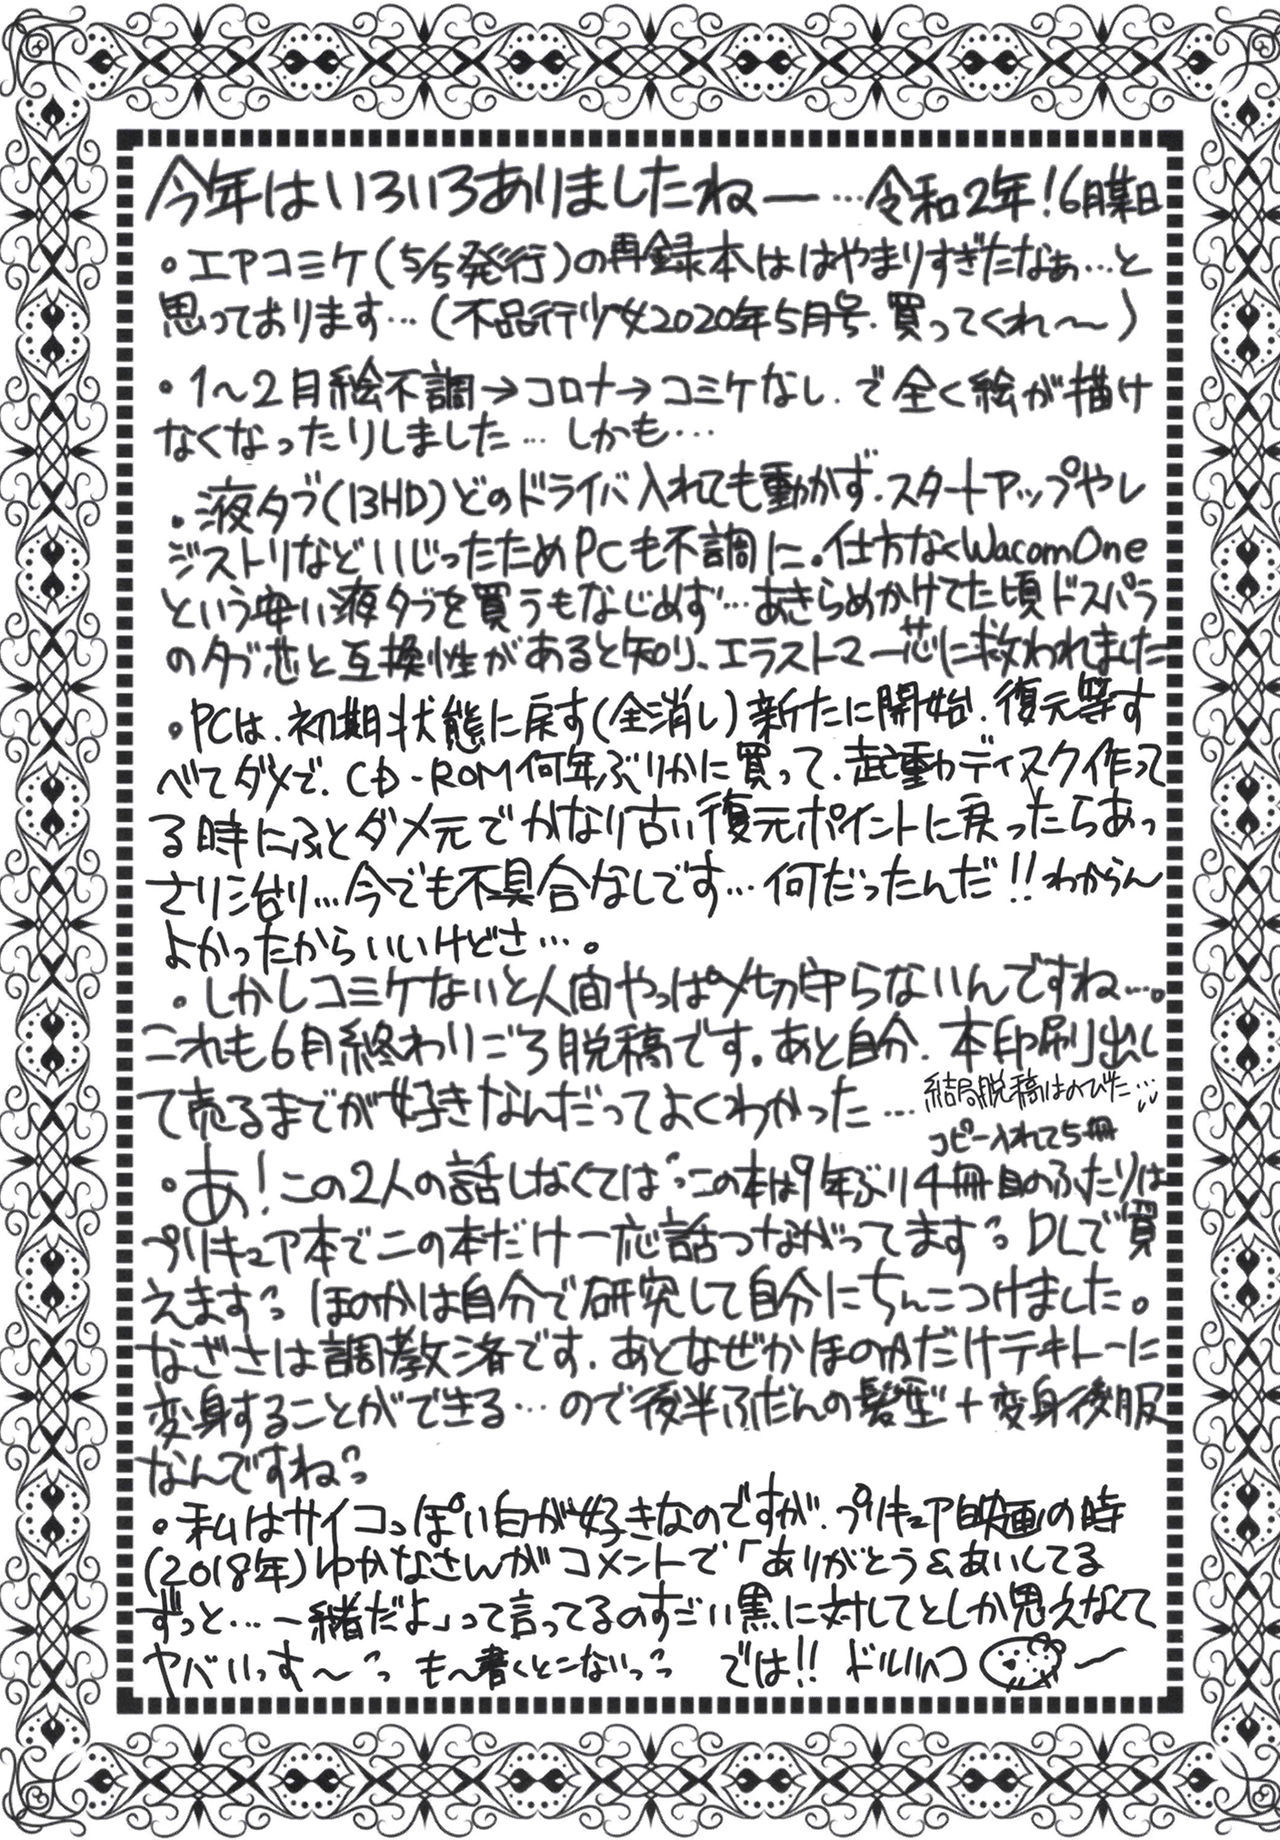 今年はいろいろありましたねー…令和2年!6月某日
・エアコミケ(5/5発行)の再録本ははやまりすぎたなぁ…と
思っております…(不品行少女2020年5月号.買ってくれ〜)
・1〜2月絵不調→コロナ→コミケなし.で全く絵が描け
なくなったりしました…しかも…
・液タブ(13HD)どのドライバ入れても動かず.スタートアップやレ
ジストリなどいじったためPCも不調に。仕方なくWacomOne
という安い液タブを買うもなじめず…あきらめかけてた頃ドスパラ
のタブ芯と互換性があると知り、エラストマー芯に救われました
・PCは、初期状態に戻す(全消し)新たに開始、復元等す
べてダメで、CD-ROM何年ぶりかに買って、起動ディスク作って
る時にふとダメ元でかなり古い復元ポイントに戻ったらあっ
さり治り…今でも不具合なしです…何だったんだ!!わからん
よかったからいいけどさ…。
・しかしコミケないと人間やっぱ〆切守らないんですね…。
これも6月終わりごろ脱稿です。あと自分.本印刷出し
て売るまでが好きなんだってよくわかった…
結局脱稿はのびた…
コピー入れて5冊
・あ!この2人の話しなくてはこの本は9年ぶり4冊目のふたりは
プリキュア本でこの本だけ一応話つながってます DLで買
えます ほのかは自分で研究して自分にちんこつけました。
なぎさは調教済です.あとなぜかほのかだけテキトーに
変身することができる…ので後半ふだんの髪型+変身後服
なんですね
・私はサイコっぽい白が好きなのですが.プリキュア映画の時
(2018年)ゆかなさんがコメントで「ありがとう&あいしてる
ずっと…一緒だよ」って言ってるのすごい黒に対してとしか思えなくて
ヤバいっす〜 も〜書くとこないっ では!! ドルリヘコ